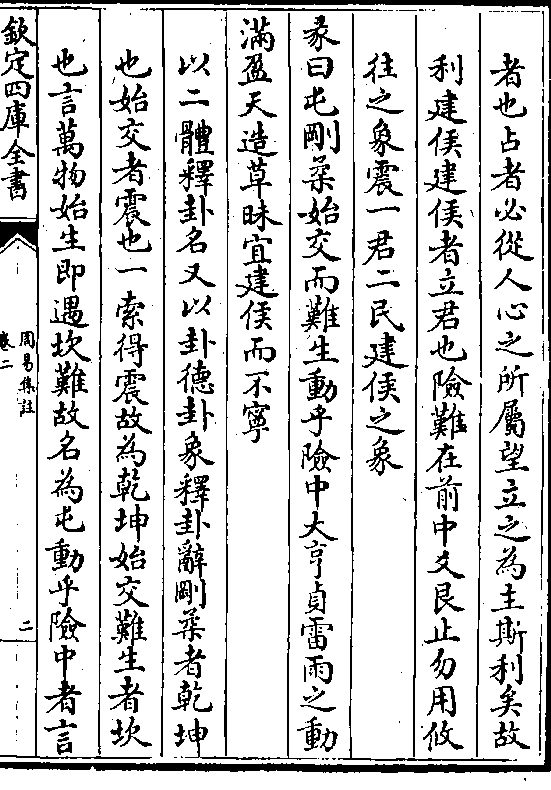 者也占者必從人心之所屬望立之為主斯利矣故
利建侯建侯者立君也險難在前中爻艮止勿用攸
往之象震一君二民建侯之象
彖曰屯剛柔始交而難生動乎險中大亨貞雷雨之動
滿盈天造草昧宜建侯而不寧
以二體釋卦名又以卦德卦象釋卦辭剛柔者乾坤
也始交者震也一索得震故為乾坤始交難生者坎
也言萬物始生即遇坎難故名為屯動乎險中者言
欽定四庫全書
周易集註
卷二
二